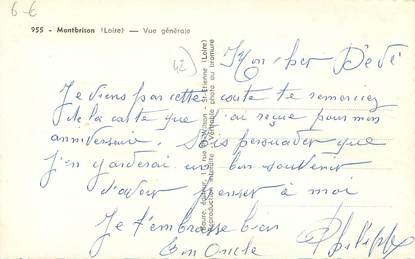 6-€
955 - Montbrison (Loire) — Vue générale
42)
Mon cher Dédé
Je viens par cette carte te remercier
de la carte que j'ai reçue pour mon
anniversaire. Sois persuader que
j'en garderai un bon souvenir
d'avoir penser à moi
Je t'embrasse bien
Ton Oncle Philippe
éditeur, 1, rue Wilson - St-Etienne (Loire)
Reproduction interdite - Véritable photo au bromure